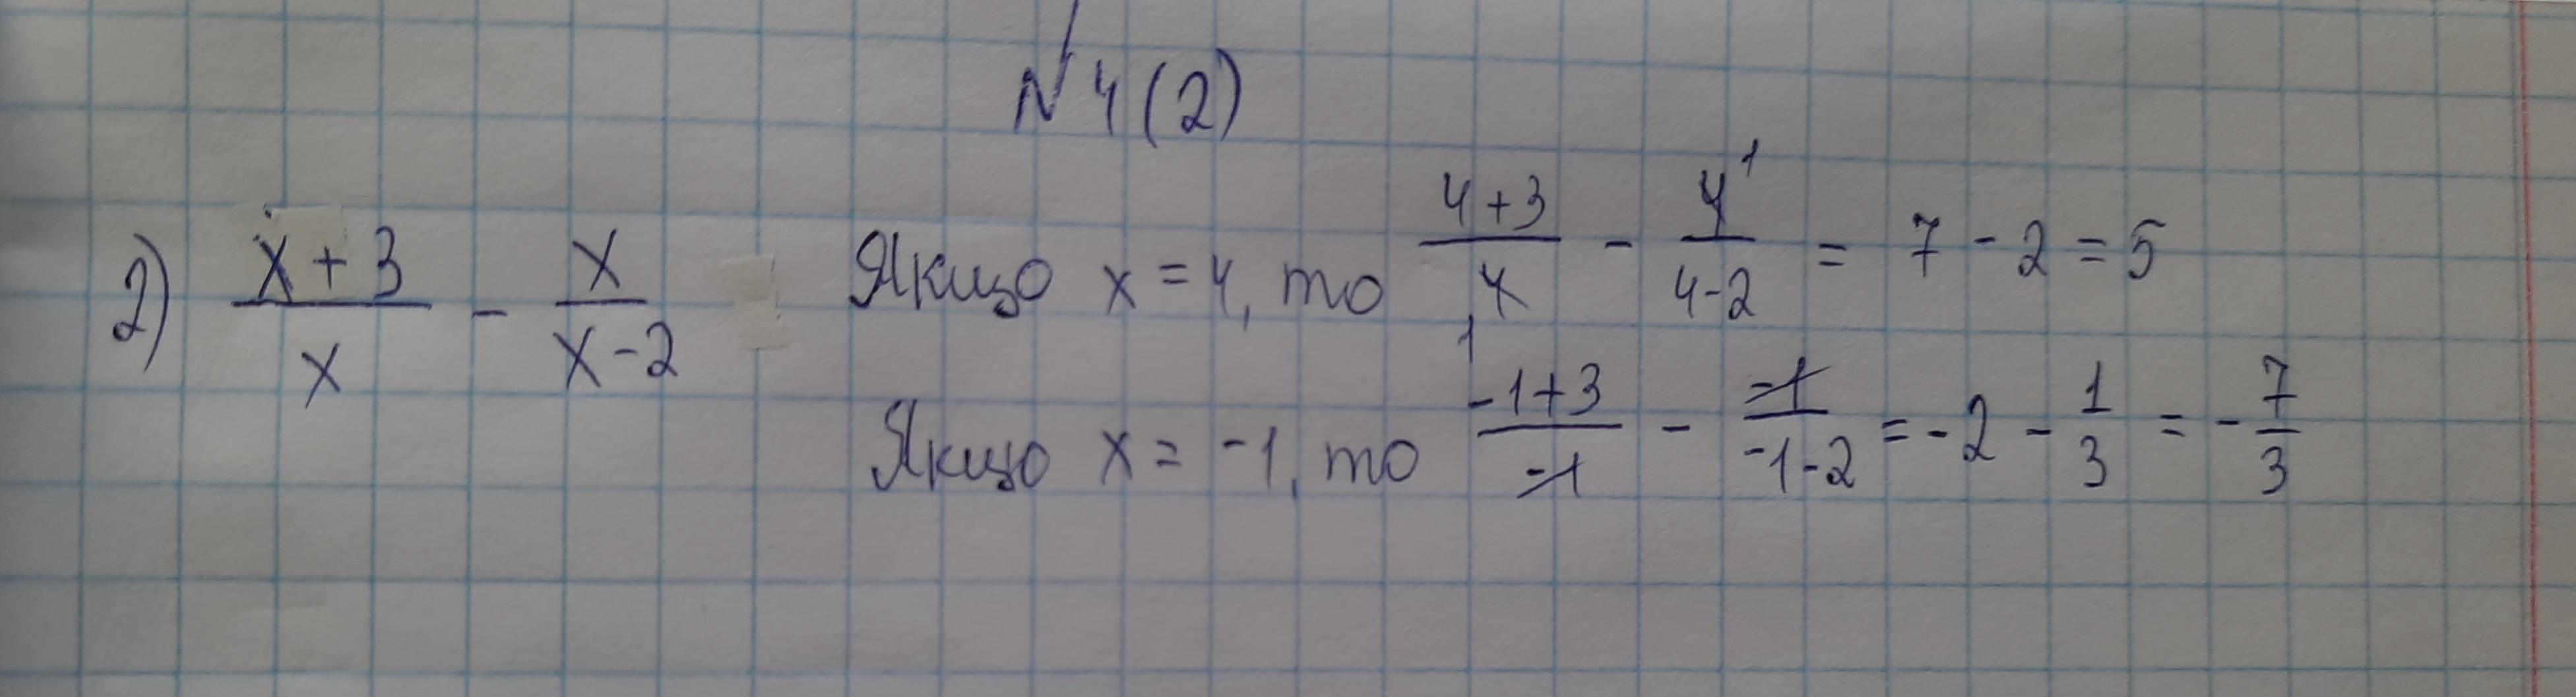 № 4 (2)
2) (x+3)/x - x/(x-2) Якщо x = 4, то (4+3)/4 1 - 4 1/(4-2) = 7 - 2 = 5
Якщо x = -1, то (-1+3)/-1 - -1/(-1-2) = -2 - 1/3 = -7/3